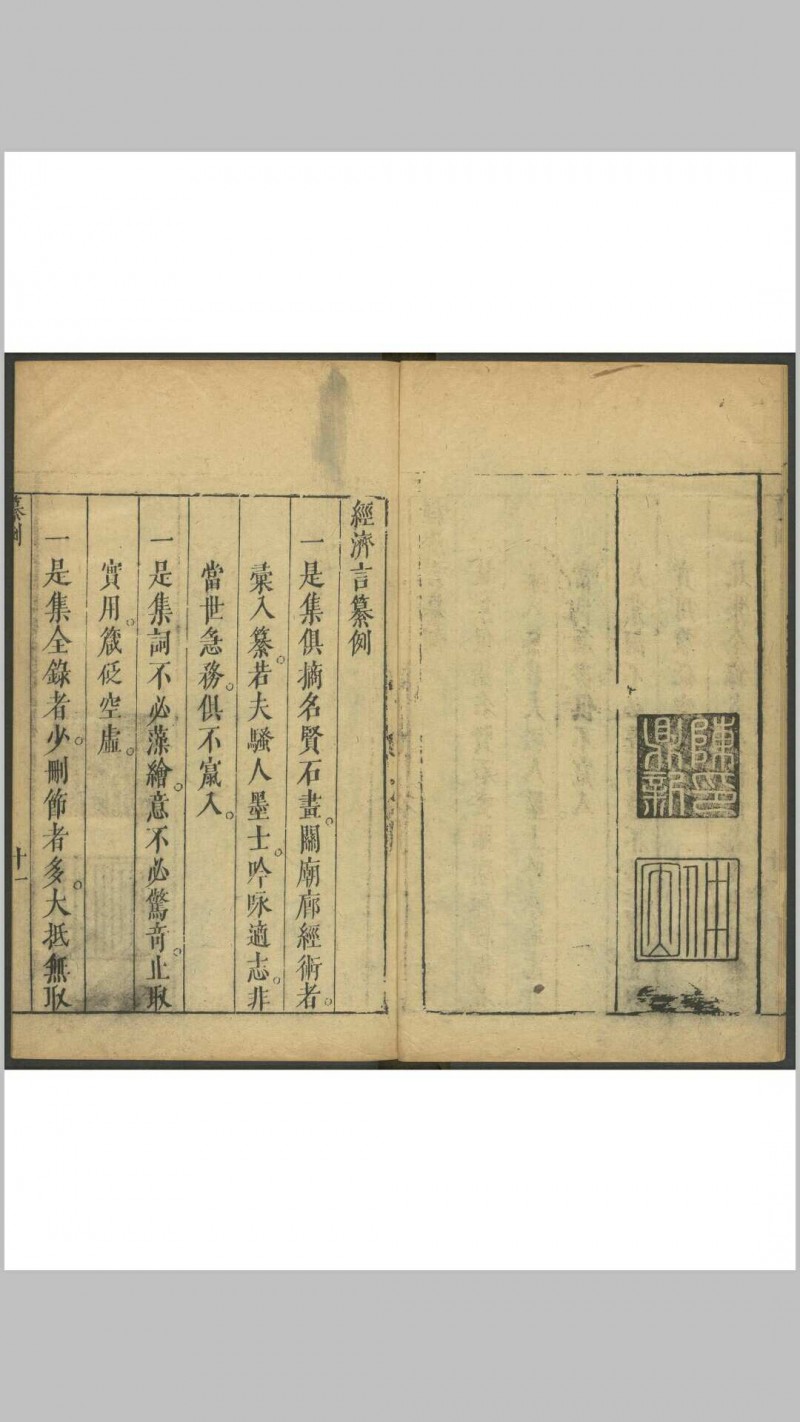 陳印鼎新
經濟言纂例
一是集俱摘名賢石畫。關廟廊經術者。
彚入纂。若夫騷人墨士。吟咏適志。非
當世急務。俱不宷入。
一是集詞不必藻繪。意不必驚奇。止取
實用。箴砭空虛。
一是集全錄者少。刪節者多。大抵無取
纂例
十一